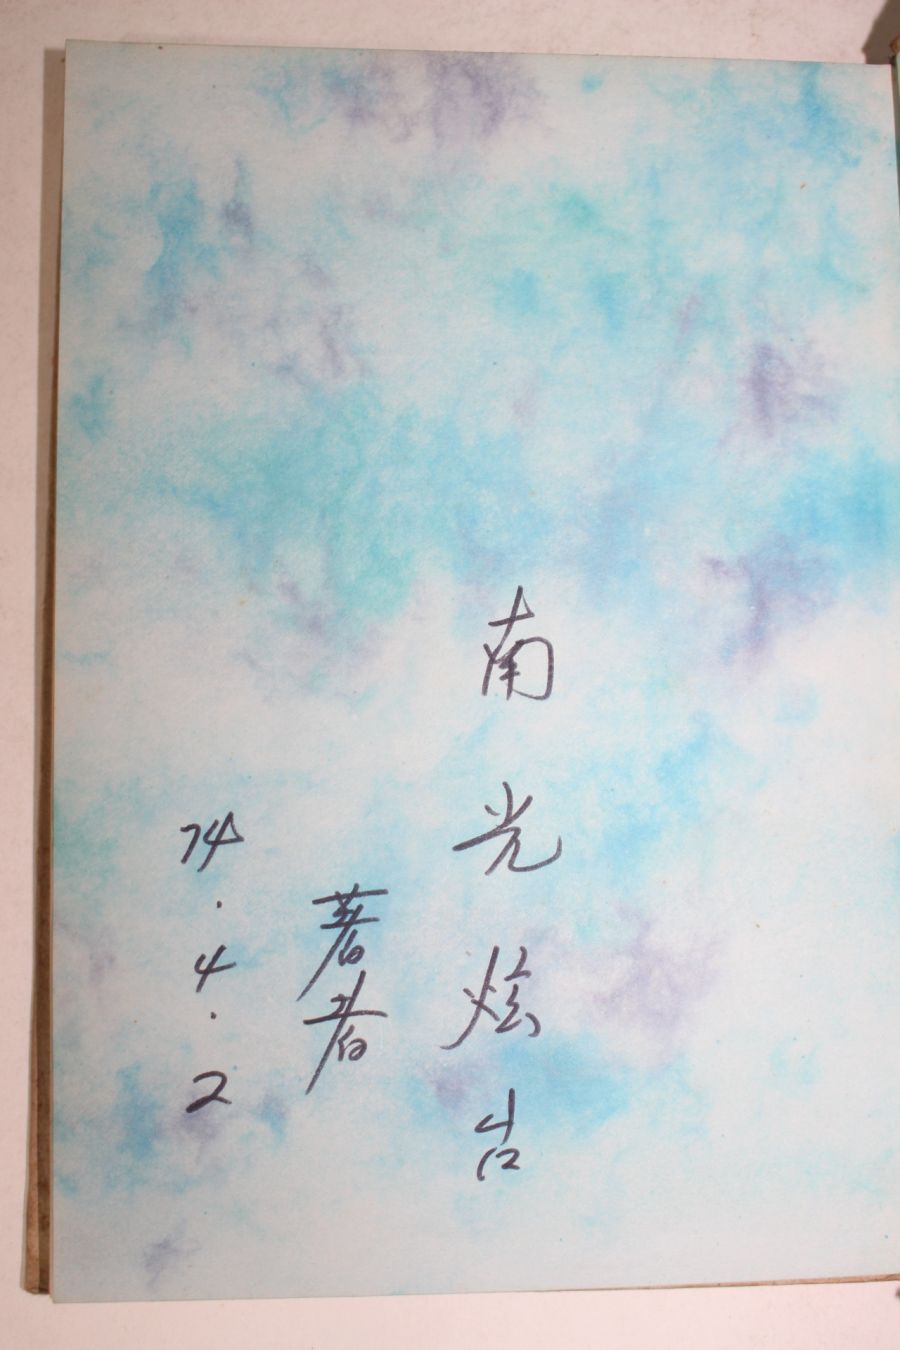 南光炫台
著者
74.4.2